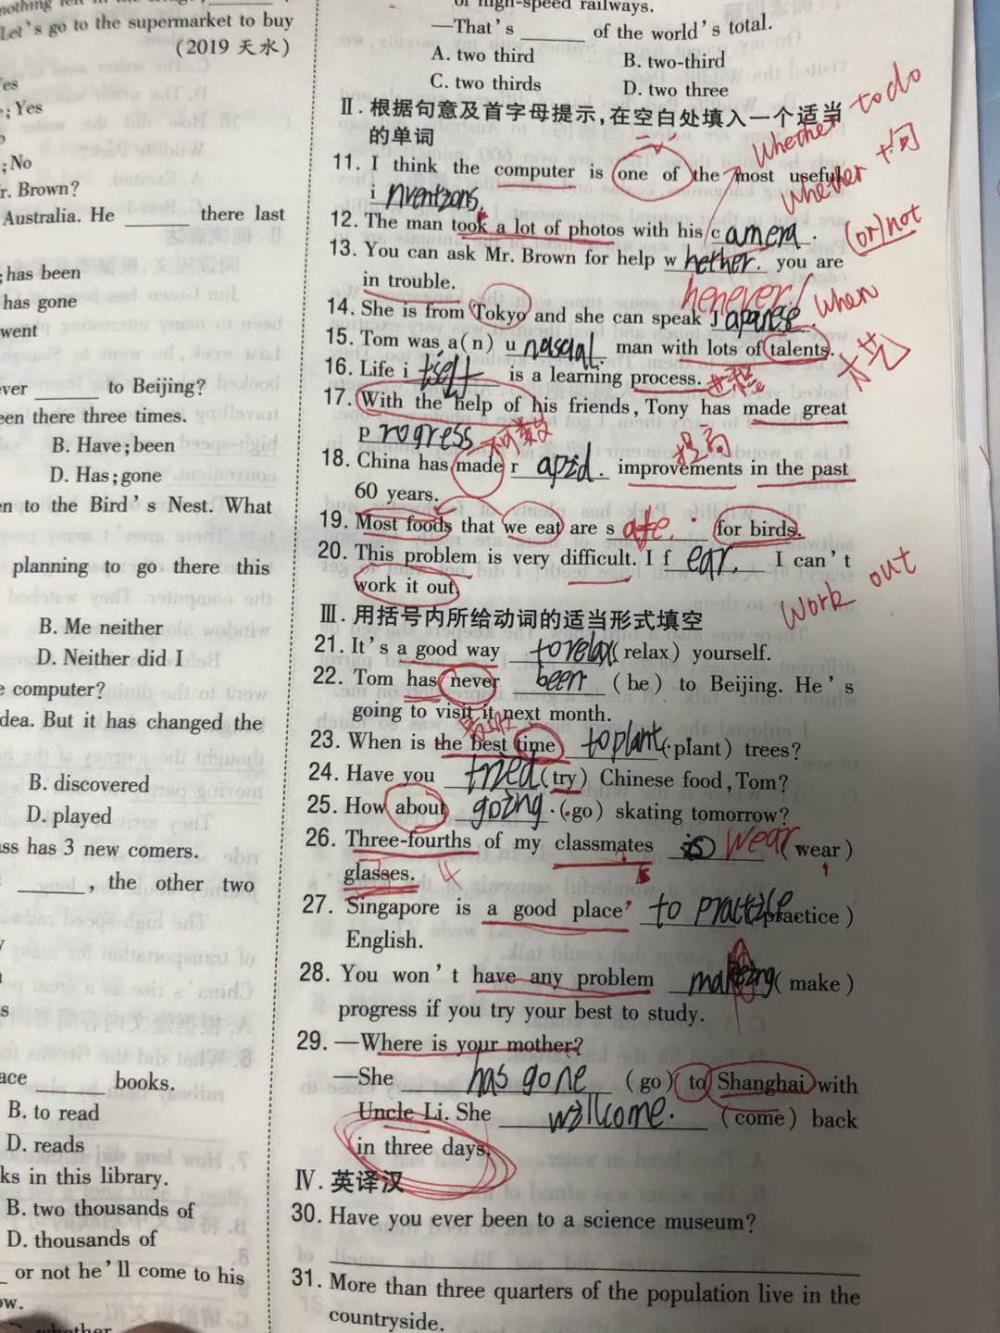 nothing
Let's go to the supermarket to buy
(2019 天水)
es
; Yes
; No
r. Brown?
Australia. He ______ there last
; has been
has gone
went
ever ______ to Beijing?
een there three times.
B. Have; been
D. Has; gone
en to the Bird's Nest. What
planning to go there this
B. Me neither
D. Neither did I
e computer?
dea. But it has changed the
B. discovered
D. played
ass has 3 new comers.
______, the other two
books.
B. to read
D. reads
ks in this library.
B. two thousands of
D. thousands of
or not he'll come to his
ow.
of high-speed railways.
—That's ______ of the world's total.
A. two third B. two-third
C. two thirds D. two three
Ⅱ. 根据句意及首字母提示,在空白处填入一个适当
的单词
whether to do
whether +句
(or) not
11. I think the computer is one of the most useful
inventions.
12. The man took a lot of photos with his camera.
13. You can ask Mr. Brown for help whether. you are
in trouble.
henever / when
14. She is from Tokyo and she can speak Japanese.
15. Tom was a(n) u man with lots of talents.
才艺
16. Life itself is a learning process. 过程
17. With the help of his friends, Tony has made great
progress 不可数
18. China has made rapid. improvements in the past
提高
60 years.
19. Most foods that we eat are safe. for birds.
20. This problem is very difficult. I fear. I can't
work it out.
work out
Ⅲ. 用括号内所给动词的适当形式填空
21. It's a good way to relax (relax) yourself.
22. Tom has never been (be) to Beijing. He's
going to visit it next month.
23. When is the best time to plant (plant) trees?
24. Have you tried (try) Chinese food, Tom?
25. How about going (go) skating tomorrow?
26. Three-fourths of my classmates wear (wear)
glasses. 4
27. Singapore is a good place to practise (practice)
English.
28. You won't have any problem making (make)
progress if you try your best to study.
29. —Where is your mother?
—She has gone (go) to Shanghai with
Uncle Li. She will come. (come) back
in three days.
Ⅳ. 英译汉
30. Have you ever been to a science museum?
31. More than three quarters of the population live in the
countryside.